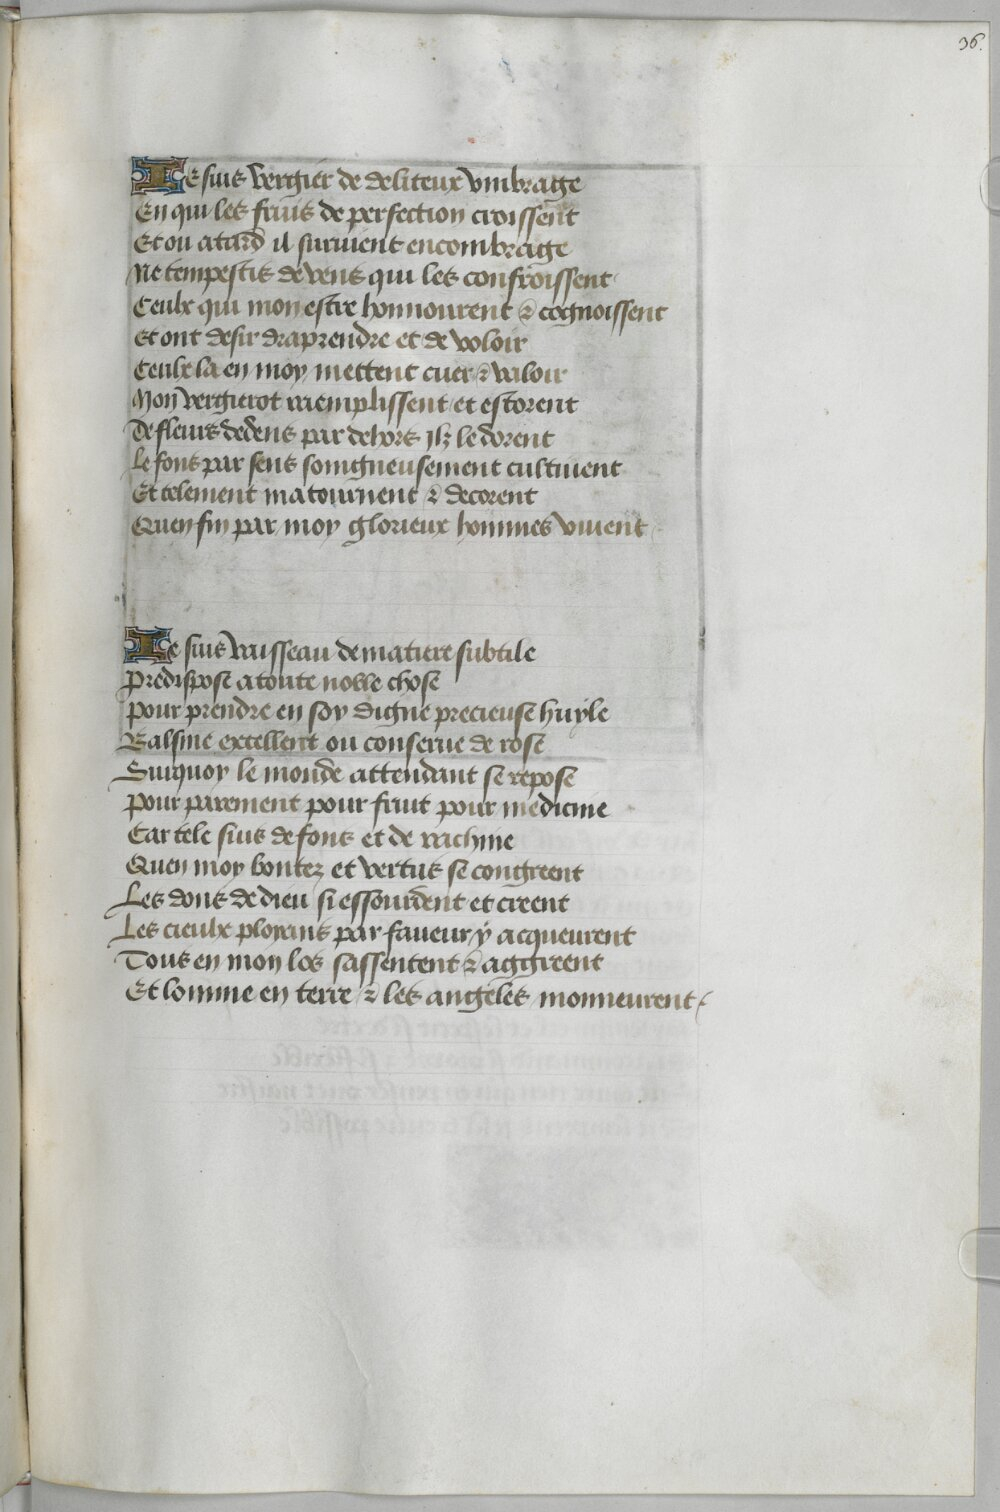 36.
Ie suis vergier de deliteux vmbrage
En qui les fruis de perfection croissent
Et ou atard il suruient encombrage
Ne tempestes de vens qui les confroissent
Ceulx qui mon estre honnourent & cognoissent
Et ont desir draprendre et de voloir
Ceulx la en moy mettent cuer & valoir
Mon vergierot raemplissent et estorent
De fleurs dedens par dehors ilz le dorent
Le font par sens soingneusement cultiuent
Et telement matournent & decorent
Quen fin par moy glorieux hommes viuent
Ie suis vaisseau de matiere subtile
Predispose a toute noble chose
Pour prendre en soy digne precieuse huyle
Balsme excellent ou conserue de rose
Surquoy le monde attendant se repose
Pour parement pour fruit pour medicine
Car tele suis de fons et de rachine
Quen moy bontez et vertus se congreent
Les dons de dieu si essourdent et creent
Les cieulx ployans par faueur y acqueurent
Tous en mon los sassentent & aggreent
Et lomme en terre & les angeles monneurent